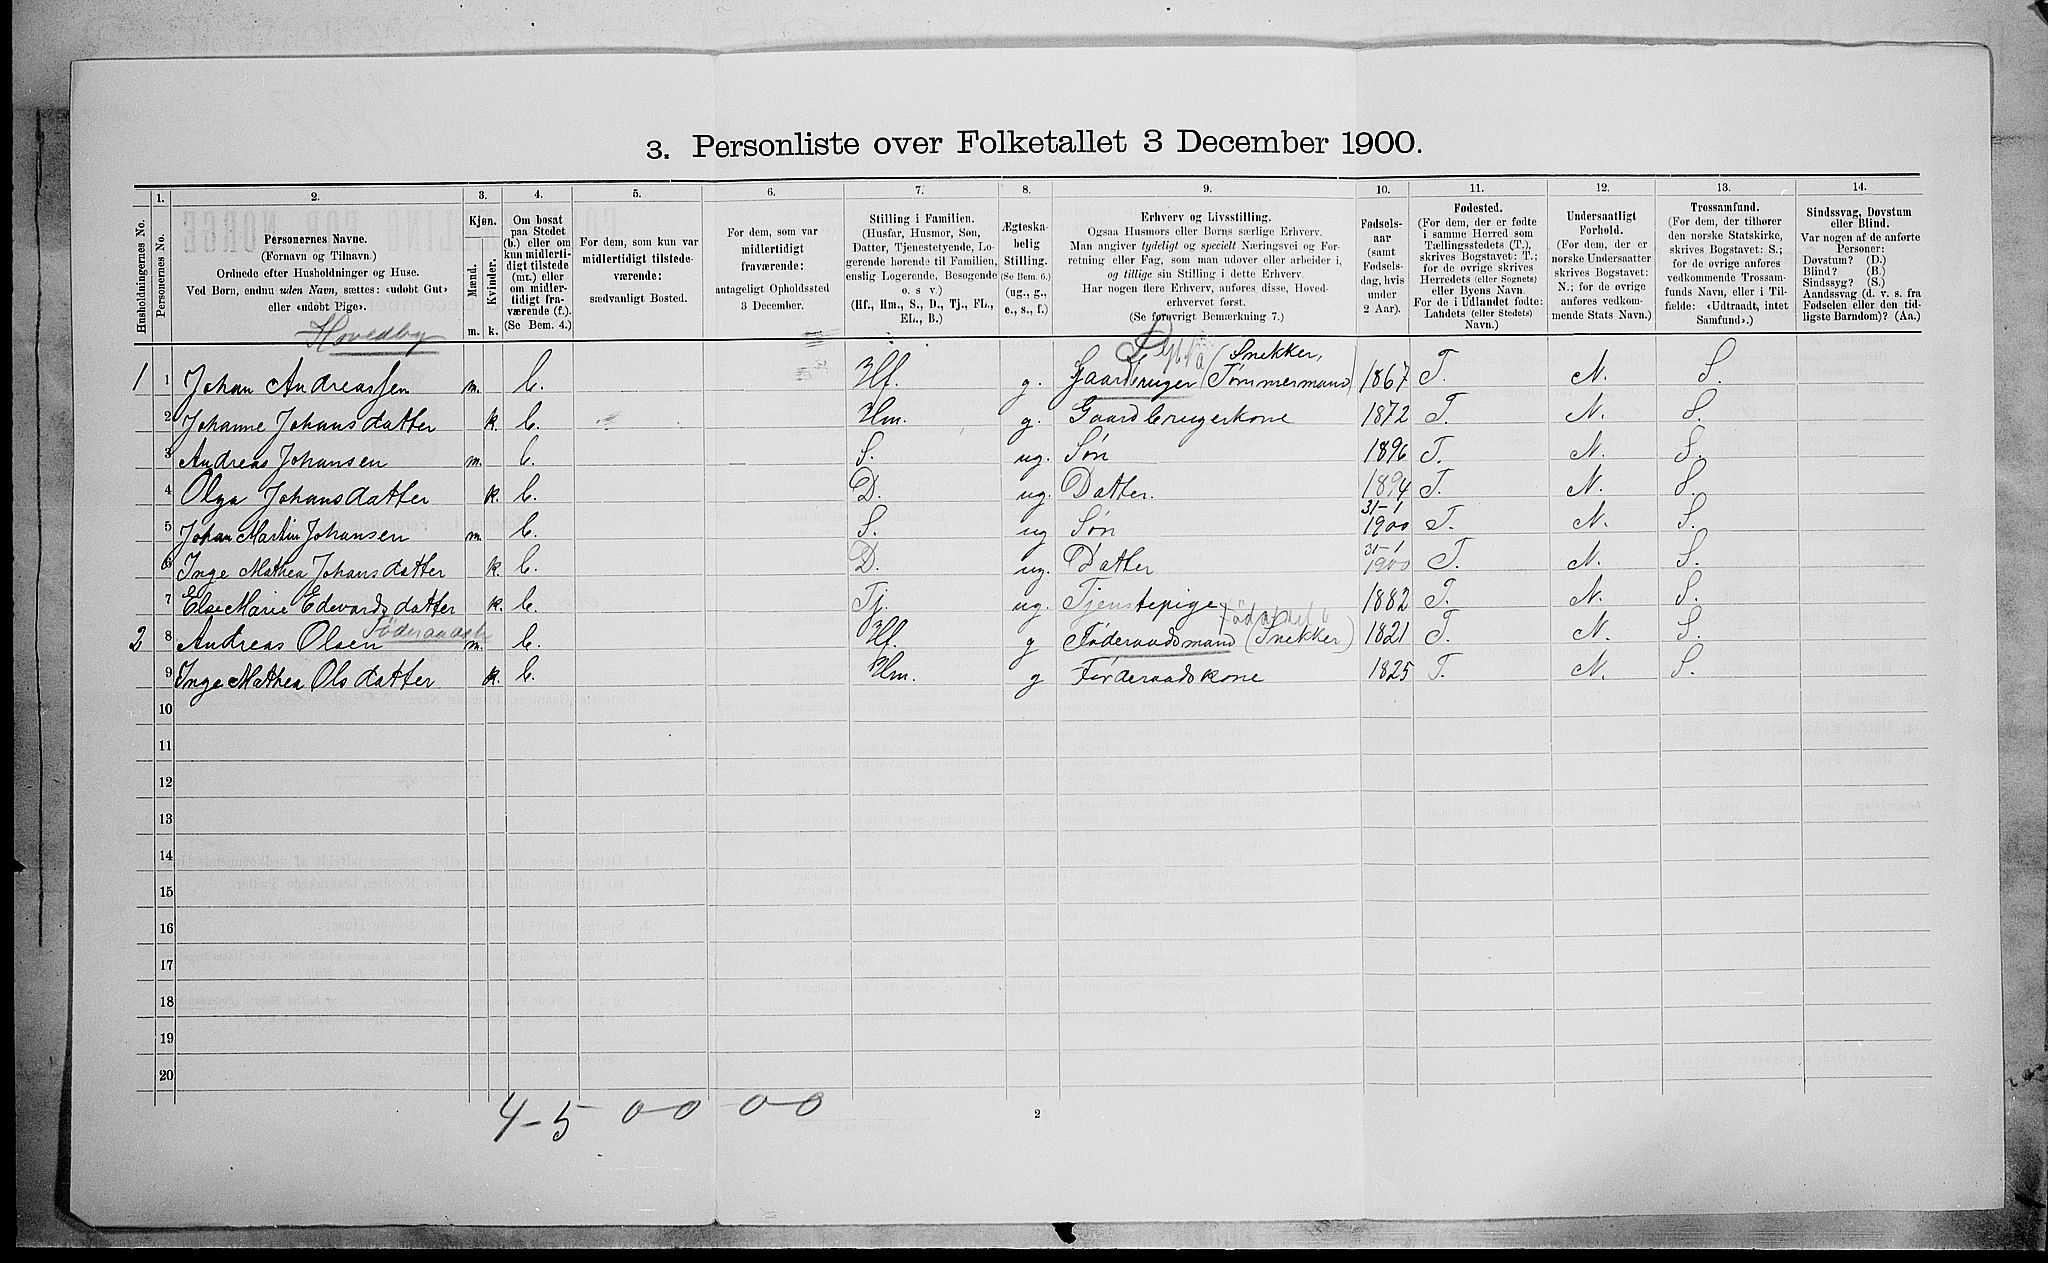 3. Personliste over Folketallet 3 December 1900.
1. 2. 3. 4. 5. 6. 7. 8. 9. 10. 11. 12. 13. 14.
Husholdningernes No.
Personernes No.
Personernes Navne.
(Fornavn og Tilnavn.)
Ordnede efter Husholdninger og Huse.
Ved Børn, endnu uden Navn, sættes: «udøbt Gut»
eller «udøbt Pige».
Kjøn.
Mænd.
Kvinder.
m. k.
Om bosat
paa Stedet
(b.) eller om
kun midler-
tidigt tilstede
(mt.) eller
om midler-
tidigt fra-
værende (f.).
(Se Bem. 4.)
For dem, som kun var
midlertidigt tilstede-
værende:
sædvanligt Bosted.
For dem, som var
midlertidigt
fraværende:
antageligt Opholdssted
3 December.
Stilling i Familien.
(Husfar, Husmor, Søn,
Datter, Tjenestetyende, Lo-
gerende hørende til Familien,
enslig Logerende, Besøgende
o. s v.)
(Hf., Hm., S., D., Tj., FL.,
EL., B.)
Ægteska-
belig
Stilling.
(Se Bem. 6.)
(ug., g.,
e., s., f.)
Erhverv og Livsstilling.
Ogsaa Husmors eller Børns særlige Erhverv.
Man angiver tydeligt og specielt Næringsvei og For-
retning eller Fag, som man udøver eller arbeider i,
og tillige sin Stilling i dette Erhverv.
Har nogen flere Erhverv, anføres disse, Hoved-
erhvervet først.
(Se forøvrigt Bemærkning 7.)
Fødsels-
aar
(samt
Fødsels-
dag, hvis
under
2 Aar).
Fødested.
(For dem, der er fødte
i samme Herred som
Tællingsstedets (T.),
skrives Bogstavet: T.;
for de øvrige skrives
Herredets (eller Sognets)
eller Byens Navn.
For de i Udlandet fødte:
Landets (eller Stedets)
Navn.)
Undersaatligt
Forhold.
(For dem, der er
norske Undersaatter
skrives Bogstavet:
N.; for de øvrige
anføres vedkom-
mende Stats Navn.)
Trossamfund.
(For dem, der tilhører
den norske Statskirke,
skrives Bogstavet: S.;
for de øvrige anføres
vedkommende Trossam-
funds Navn, eller i Til-
fælde: «Udtraadt, intet
Samfund».)
Sindssvag, Døvstum
eller Blind.
Var nogen af de anførte
Personer:
Døvstum? (D.)
Blind? (B.)
Sindssyg? (S.)
Aandssvag (d. v. s. fra
Fødselen eller den tid-
ligste Barndom)? (Aa.)
Hovedby
1 1 Johan Andreassen m. b. Hf. g. Gaardbruger (Snekker, Tømmermand) 1867 T. N. S.
2 Johanne Johansdatter k. b. Hm. g. Gaardbrugerkone 1872 T. N. S.
3 Andreas Johansen m. b. S. ug. Søn 1896 T. N. S.
4 Olga Johansdatter k. b. D. ug. Datter. 1894 T. N. S.
5 Johan Martin Johansen m. b. S. ug Søn 31-1 1900 T. N. S.
6 Inge Mathea Johansdatter k. b. D. ug. Datter 31-1 1900 T. N. S.
7 Else Marie Edvardsdatter k. b. Tj. ug. Tjenstepige 1882 T. N. S.
Föderaadsb
2 8 Andreas Olsen m. b. Hf. g Føderaadsmand (Snekker) 1821 T. N. S.
9 Inge Mathea Olsdatter k. b. Hm. g Føderaadskone 1825 T. N. S.
10
11
12
13
14
15
16
17
18
19
20
4-5 0-0 0-0
2